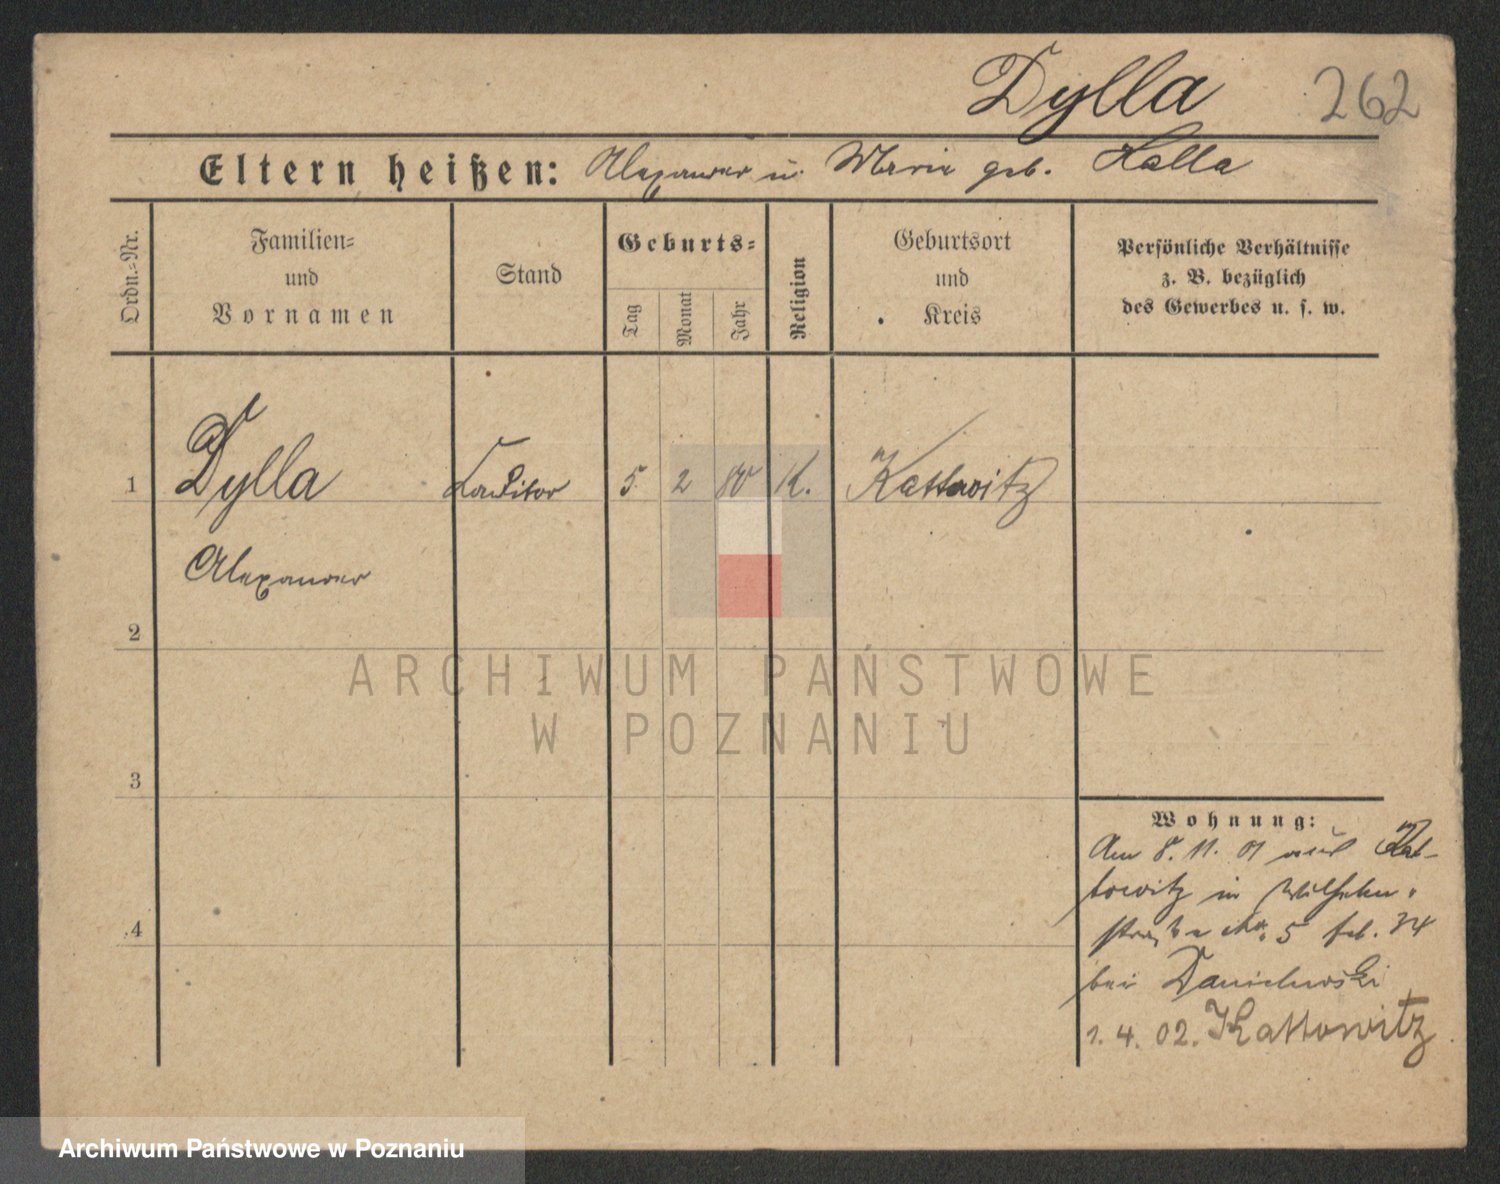 Dylla 262
Eltern heißen: Alexander u. Maria geb. Halla
Ordn.=Nr.
Familien=
und
Vornamen
Stand
Geburts=
Tag
Monat
Jahr
Religion
Geburtsort
und
Kreis
Persönliche Verhältnisse
z. B. bezüglich
des Gewerbes u. s. w.
1 Dylla Konditor 5. 2 80 K. Kattowitz
Alexander
2
3
4
ARCHIWUM PAŃSTWOWE
W POZNANIU
Wohnung:
Am 8. 11. 01 aus Kat-
towitz in Wilhelm-
straße No. 5
bei Danielewski
1. 4. 02. Kattowitz
Archiwum Państwowe w Poznaniu